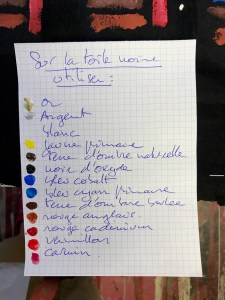 Sur la toile noire
utiliser :
or
Argent
blanc
Jaune primaire
Terre d'ombre naturelle
noir d'oxyde
bleu cobalt
bleu cyan primaire
terre d'ombre brulée
rouge anglais.
rouge cadmium
vermillon
carmin